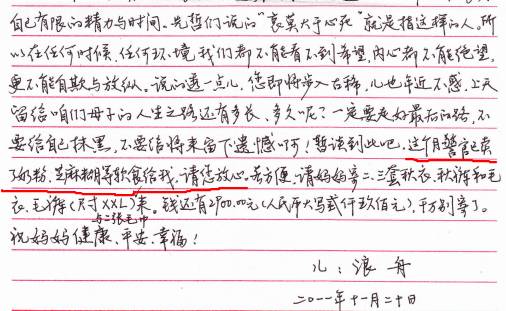 自己有限的精力与时间。先哲们说的"哀莫大于心死"就是指这样的人。所
以在任何时候、任何环境我们都不能看不到希望,内心都不能绝望,
更不能自欺与放纵。说的透一点儿,您即将步入古稀,儿也年近不惑,上天
留给咱们母子的人生之路还有多长、多久呢?一定要走好最后的路,不
要给自己抹黑,不要给将来留下遗憾啊!暂谈到此吧,这个月警官已卖
了奶粉、芝麻糊等软食给我,请您放心。若方便,请妈妈寄二、三套秋衣、秋裤和毛
衣、毛裤(尺寸XXL)来。钱还有2900.00元(人民币大写贰仟玖佰元),千万别寄了。
与二张毛巾
祝妈妈健康、平安、幸福!
儿:浪舟
二〇一一年十一月二十日